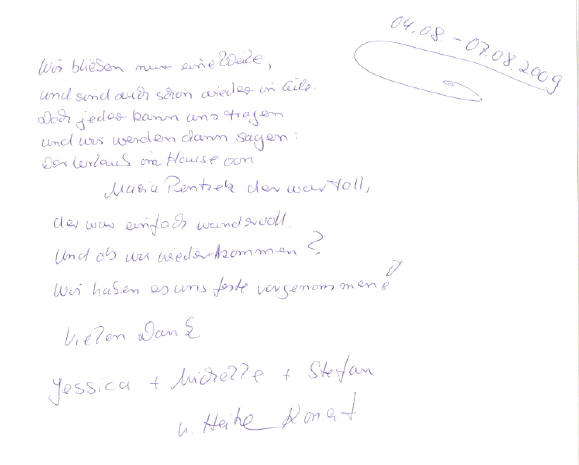 04.08 - 07.08.2009
Wir blieben nur eine Weile,
und sind auch schon wieder in Eile.
Doch jeder kann uns fragen
und wir werden dann sagen:
Der Urlaub im Hause von
Maria der war toll,
der war einfach wundervoll.
Und ob wir wiederkommen?
Wir haben es uns feste vorgenommen!
Vielen Dank
Jessica + Michelle + Stefan
u. Heike